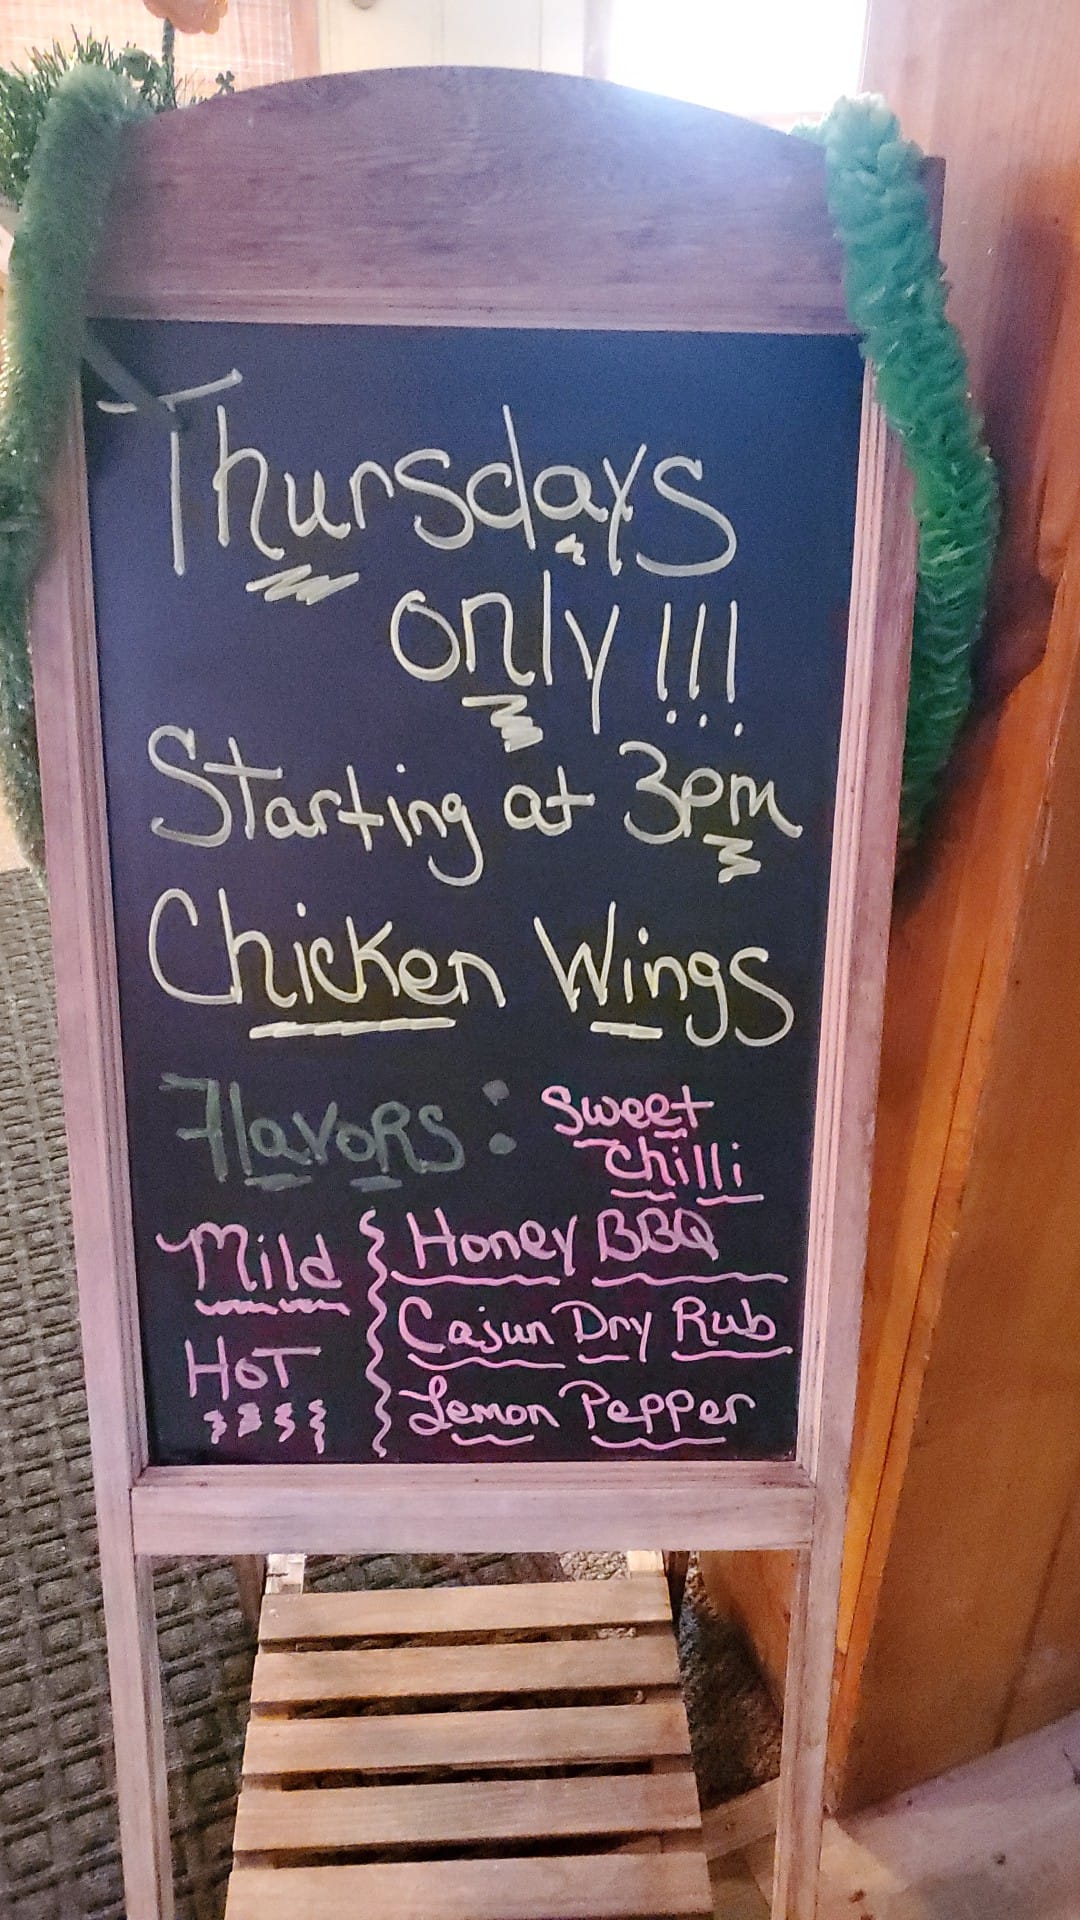 Thursdays
only!!!
Starting at 3pm
Chicken Wings
Flavors: Sweet
Chilli
Mild
Hot
Honey BBQ
Cajun Dry Rub
Lemon Pepper